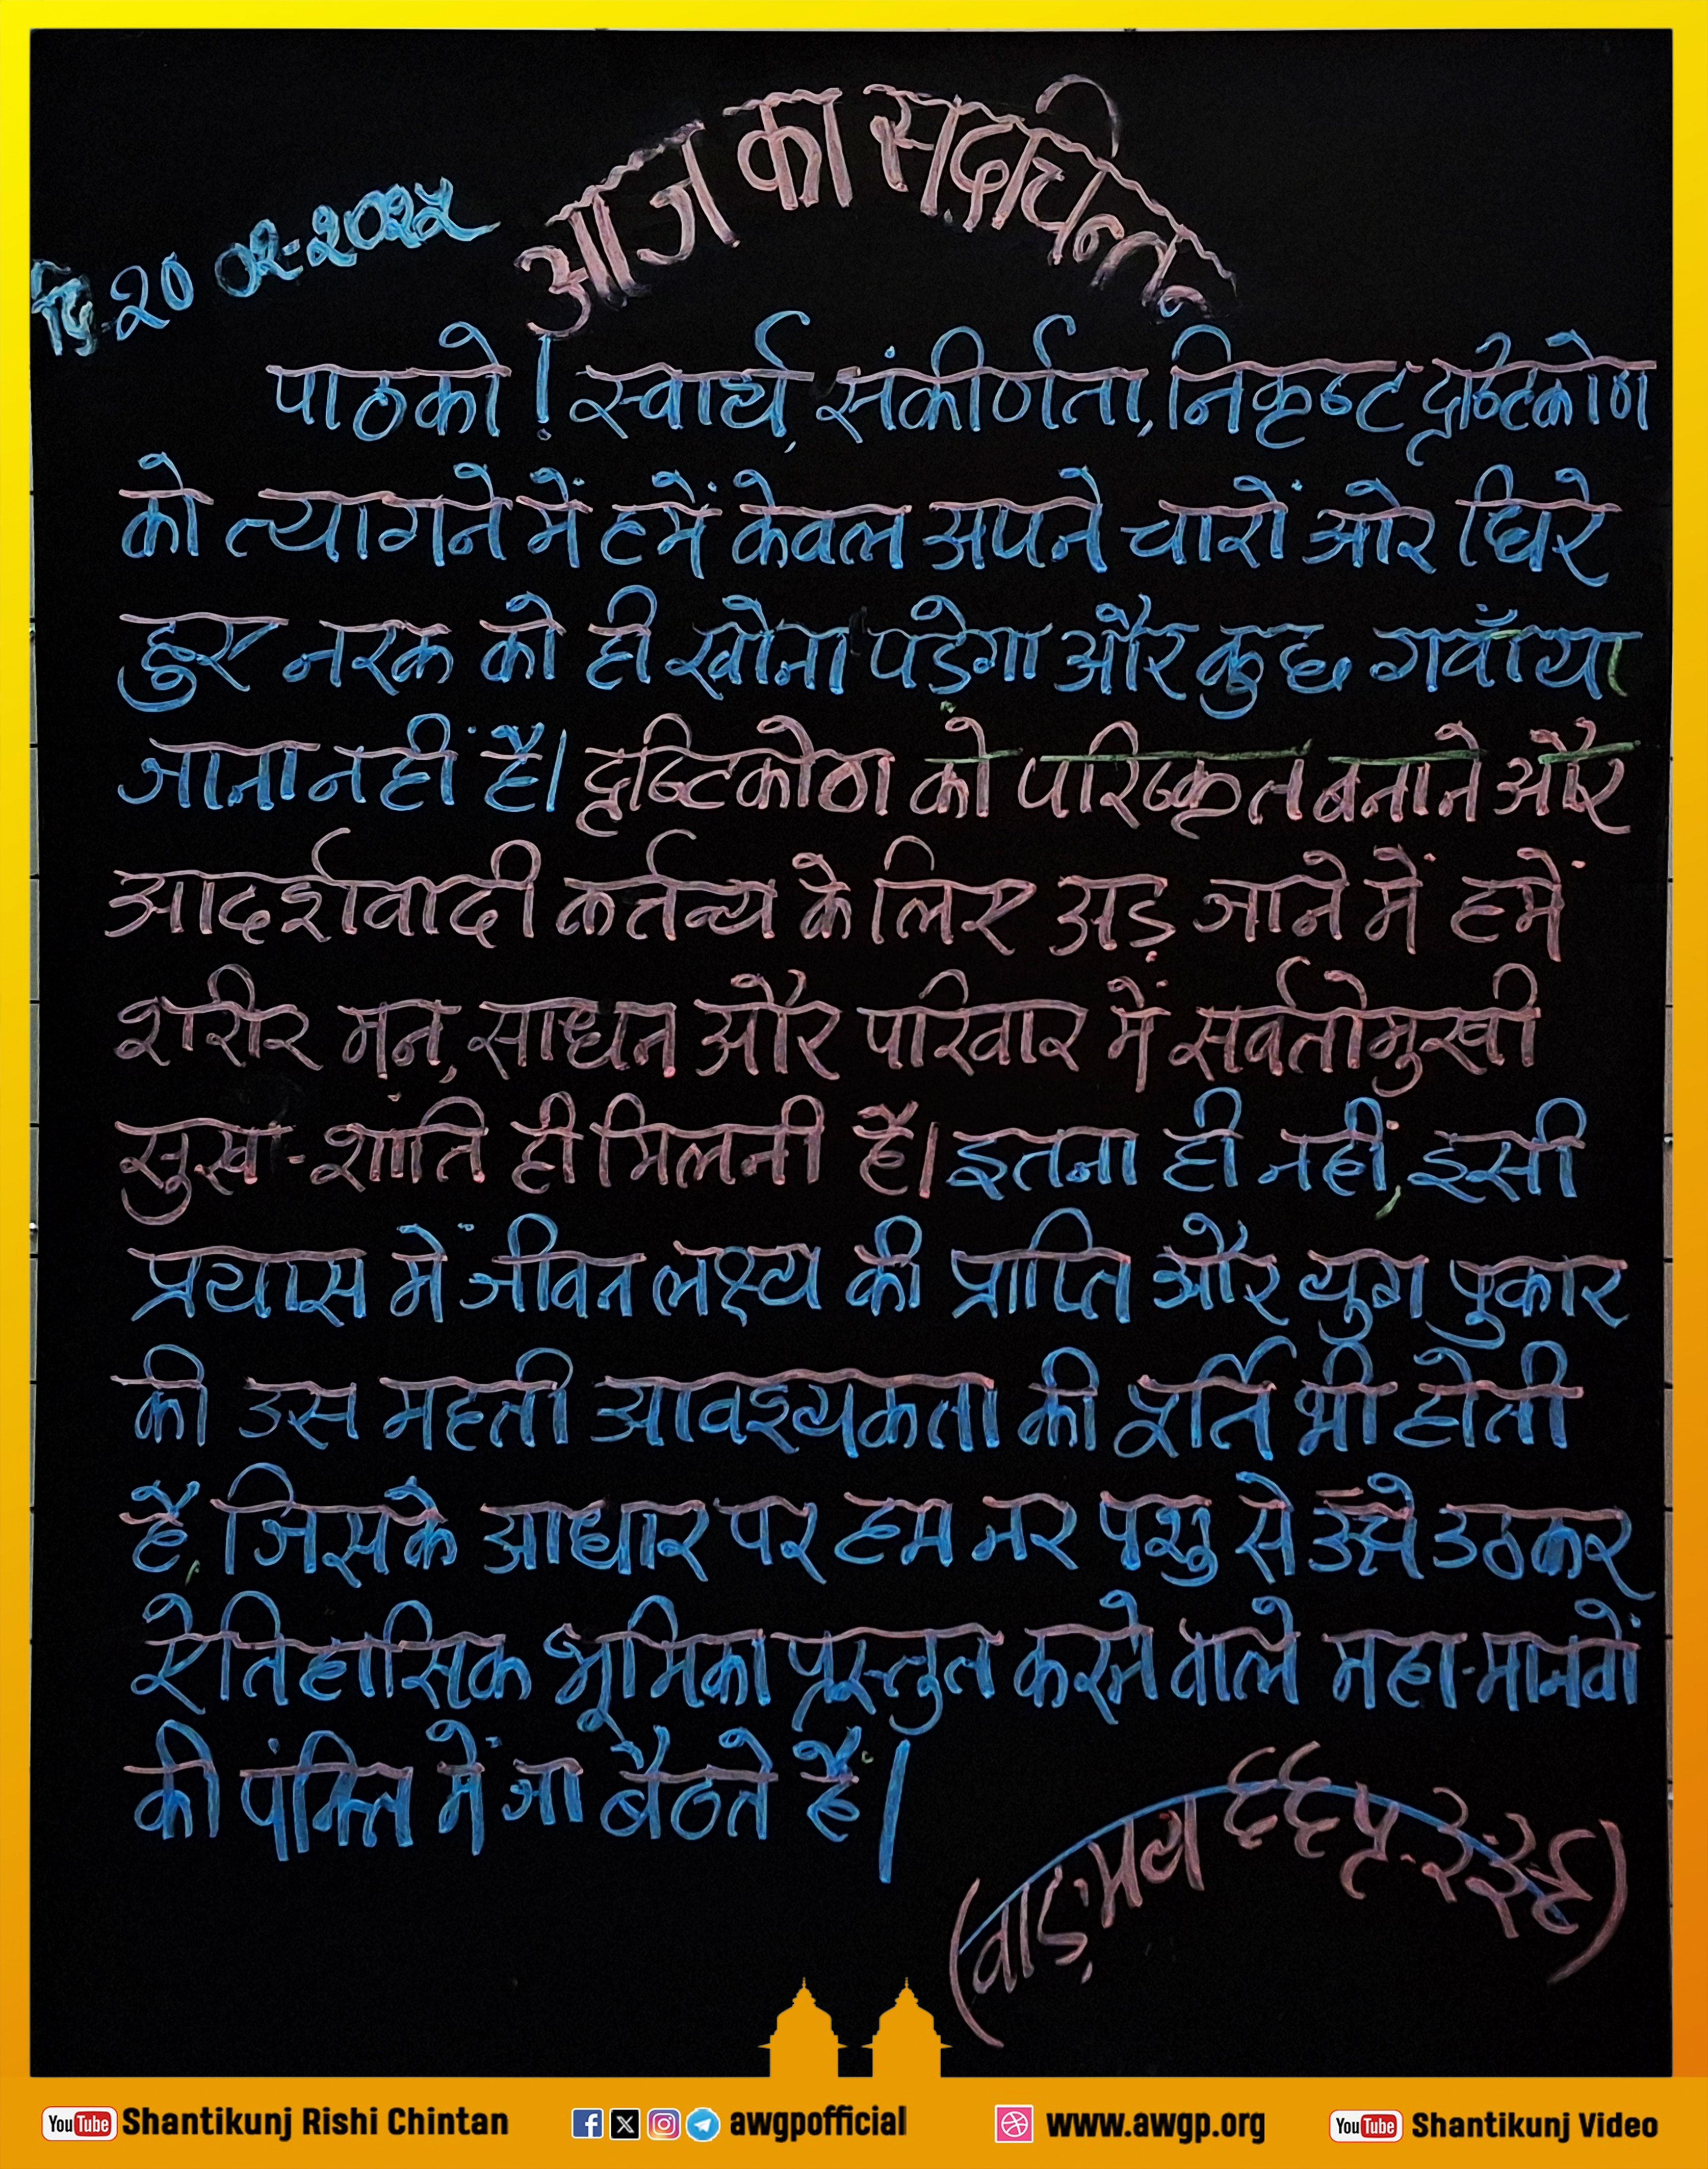 आज का सद्चिन्तन
दि. 20 02-2025
पाठको! स्वार्थ, संकीर्णता, निकृष्ट दृष्टिकोण
को त्यागने में हमें केवल अपने चारों ओर घिरे
हुए नरक को ही खोना पड़ेगा और कुछ गवाँया
जाना नहीं है। दृष्टिकोण को परिष्कृत बनाने और
आदर्शवादी कर्तव्य के लिए अड़ जाने में हमें
शरीर मन, साधन और परिवार में सर्वतोमुखी
सुख-शांति ही मिलनी है। इतना ही नहीं, इसी
प्रयास में जीवन लक्ष्य की प्राप्ति और युग पुकार
की उस महती आवश्यकता की पूर्ति भी होती
है, जिसके आधार पर हम नर पशु से ऊँचे उठकर
ऐतिहासिक भूमिका प्रस्तुत करने वाले महा-मानवों
की पंक्ति में जा बैठते हैं।
(वाङ्मय ६६ पृ.
YouTube Shantikunj Rishi Chintan awgpofficial www.awgp.org YouTube Shantikunj Video